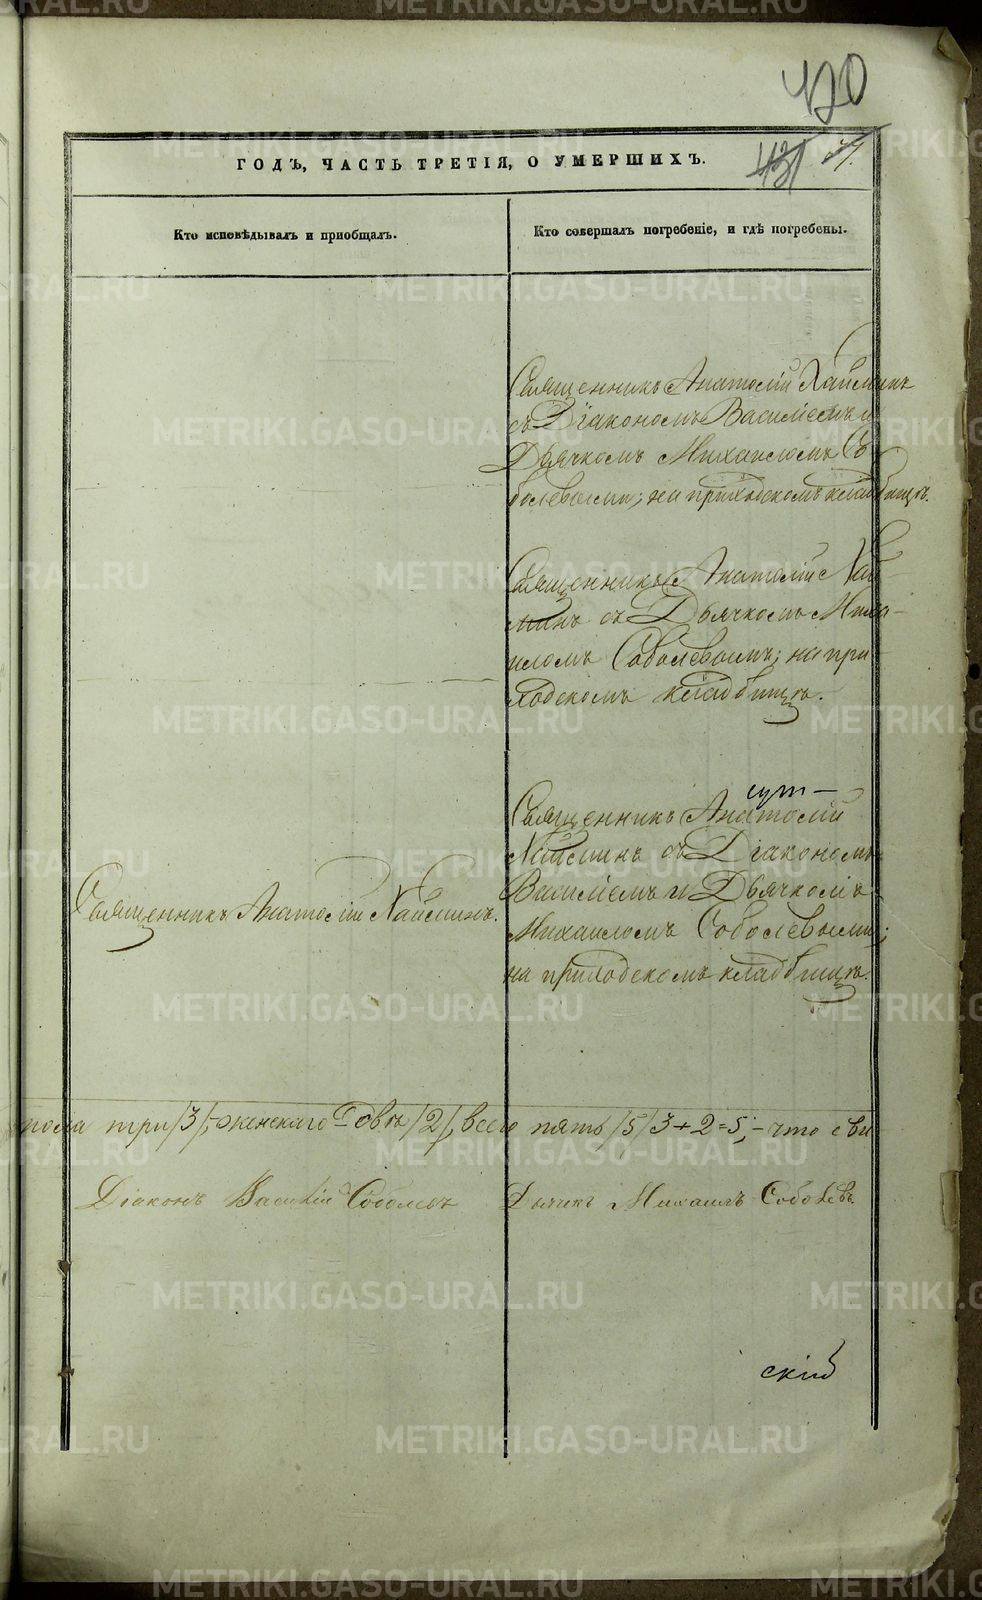 420
431
ГОДЪ, ЧАСТЬ ТРЕТІЯ, О УМЕРШИХЪ.
Кто исповѣдывалъ и приобщалъ.
Кто совершалъ погребеніе, и гдѣ погребены.
Священникъ Анатолій Хайминъ
съ Діакономъ Василіемъ и
Дьячкомъ Михаиломъ Со-
болевыми; на приходскомъ кладбищѣ.
Священникъ Анатолій Хай-
минъ съ Дьячкомъ Миха-
иломъ Соболевымъ; на при-
ходскомъ кладбищѣ.
Священникъ Анатолій
Хайминъ съ Діакономъ
Василіемъ и Дьячкомъ
Михаиломъ Соболевыми;
на приходскомъ кладбищѣ.
Священникъ Анатолій Хайминъ.
пола три /3/, женскаго двѣ /2/, всего пять /5/ 3+2=5; - что сви-
Діаконъ Василій Соболевъ
Дьячикъ Михаилъ Соболевъ
скій
METRIKI.GASO-URAL.RU